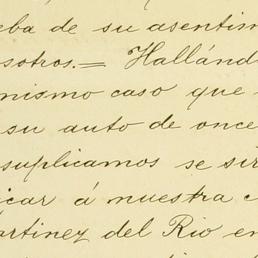 eba de su asentim
osotros.= Halland
mismo caso que
su auto de once
suplicamos se sir
icar á nuestra c
artinez del Rio en